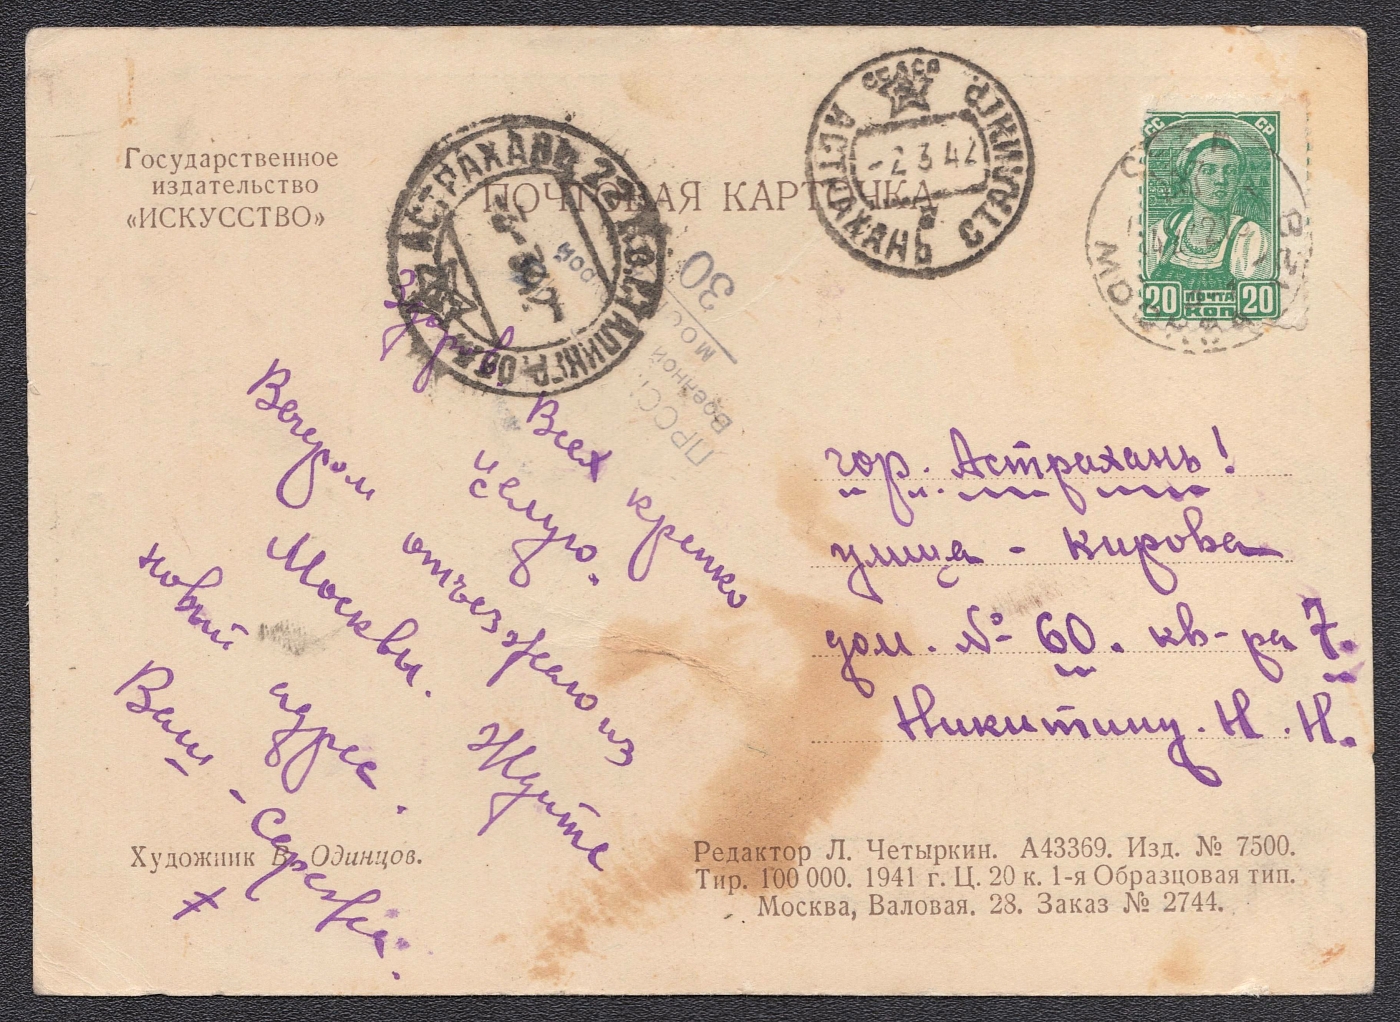 Государственное
издательство
«ИСКУССТВО»
ПОЧТОВАЯ КАРТОЧКА
АСТРАХАНЬ 22
СССР
АСТРАХАНЬ СТАЛИНГР.
-2 3 42
МОСКВА
СССР
20 ПОЧТА 20
КОП
30
Военной
Здоров.
Всех крепко
целую.
Вечером отъезжаю из
Москвы. Ждите
новый адрес.
Ваш - Сережа.
гор. Астрахань!
улица - Кирова
дом. № 60. кв-ра 7.
Никитину. Н. Н.
Художник В. Одинцов.
Редактор Л. Четыркин. А43369. Изд. № 7500.
Тир. 100 000. 1941 г. Ц. 20 к. 1-я Образцовая тип.
Москва, Валовая. 28. Заказ № 2744.